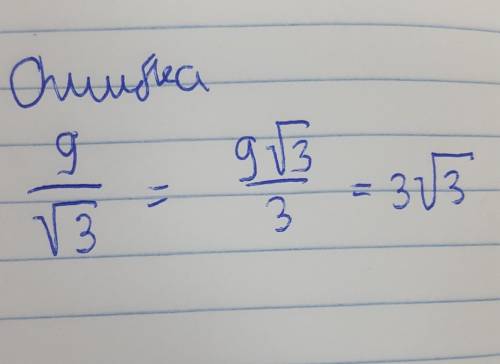 Ошибка
9/√3 = 9√3/3 = 3√3